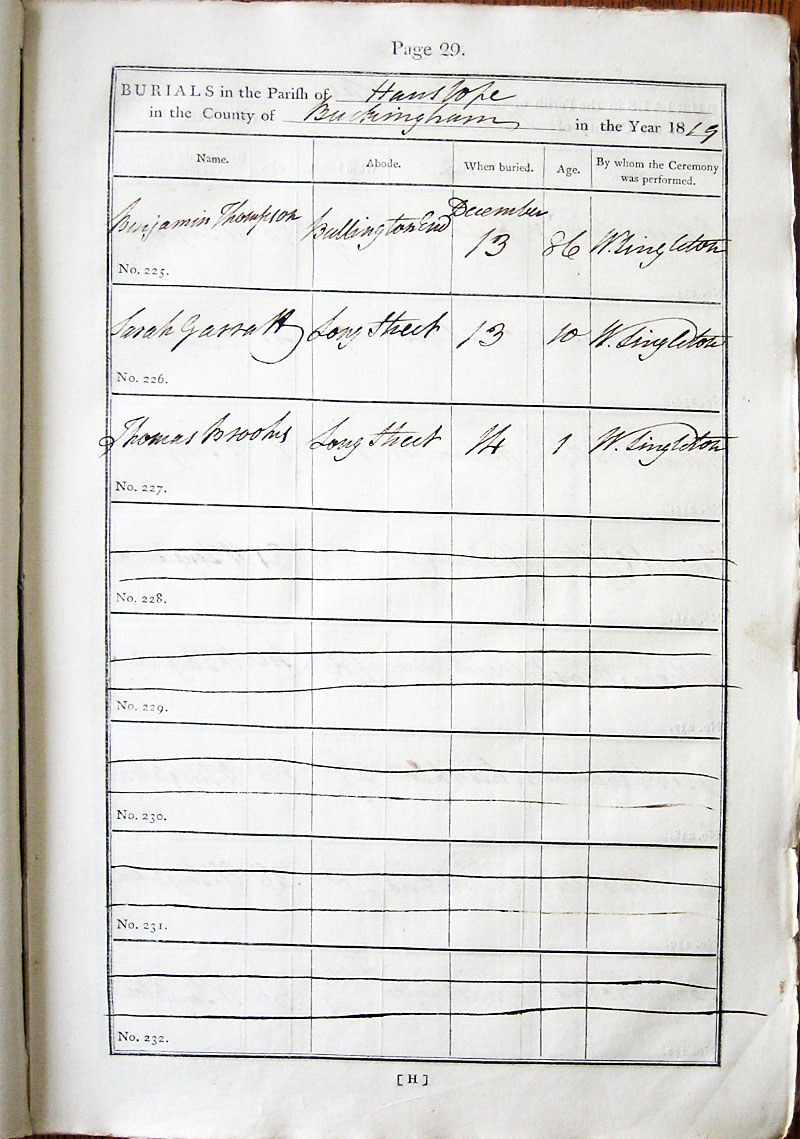 Page 29.
BURIALS in the Parish of Hanslope
in the County of Buckingham in the Year 1819
Name. Abode. When buried. Age. By whom the Ceremony was performed.
Benjamin Thompson Bullington End December 13 86 W. Singleton
No. 225.
Sarah Garratt Long Street 13 10 W. Singleton
No. 226.
Thomas Brooks Long Street 14 1 W. Singleton
No. 227.
No. 228.
No. 229.
No. 230.
No. 231.
No. 232.
[H]